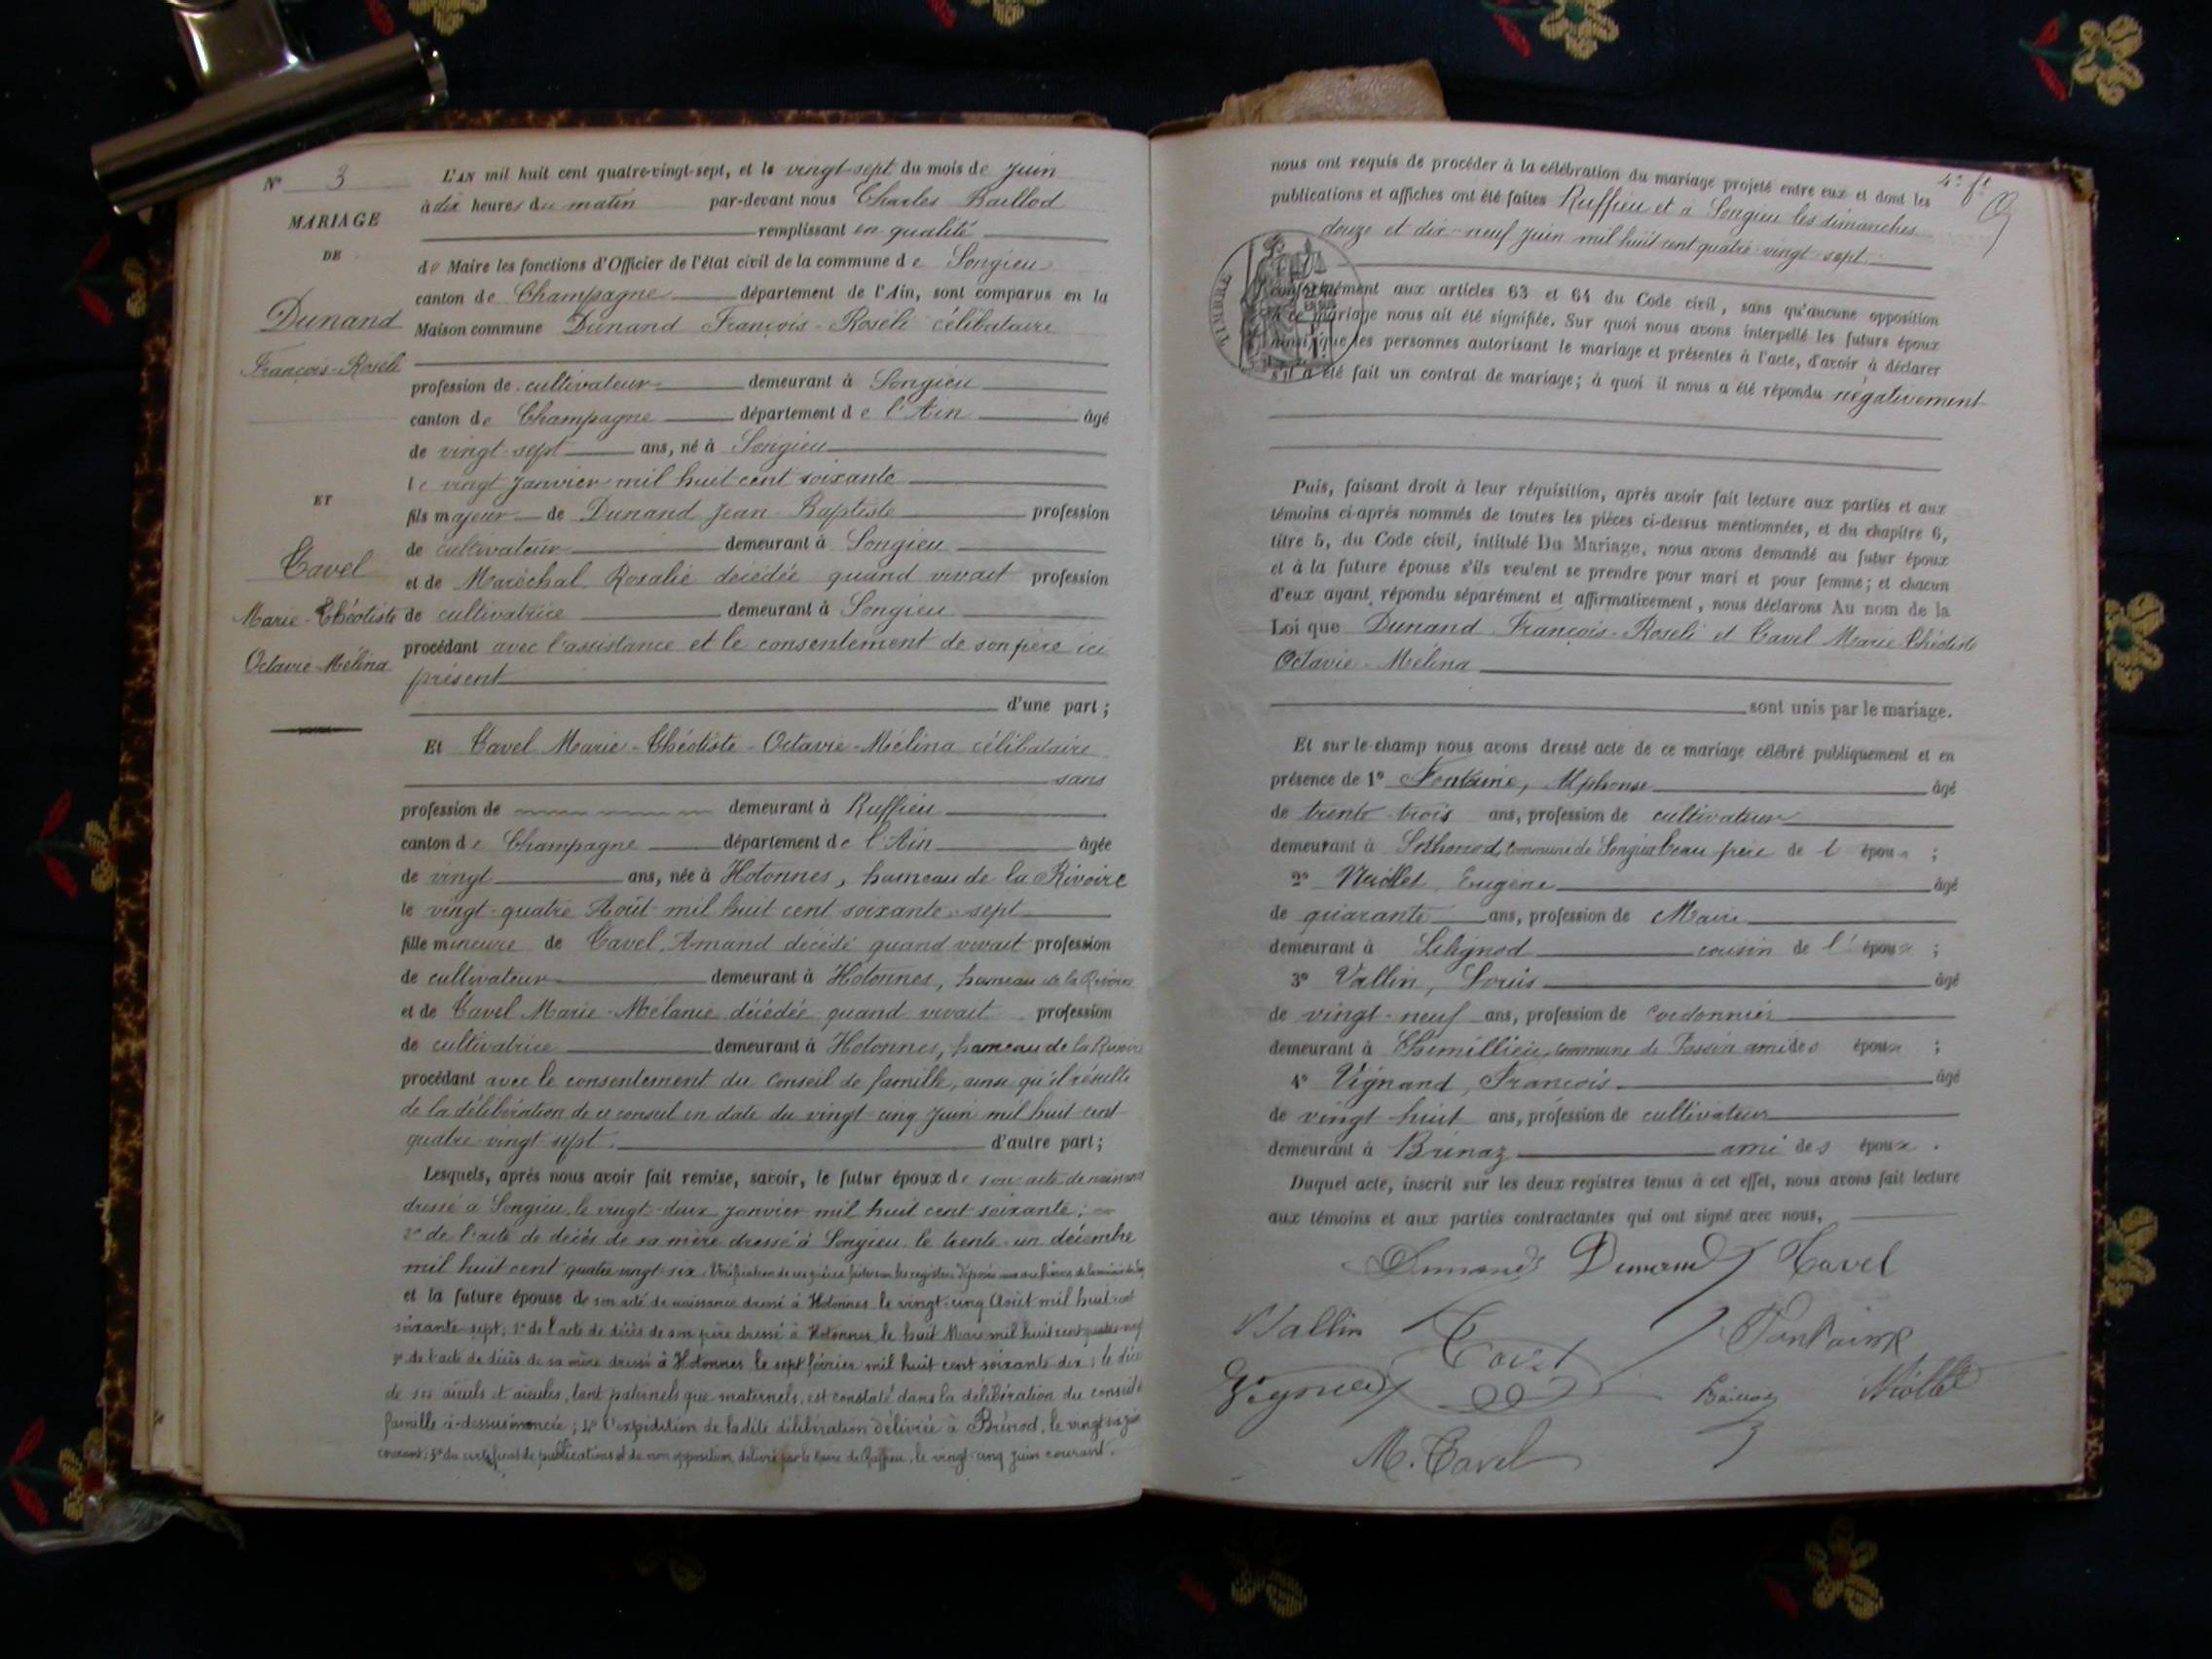 N° 3
MARIAGE
DE
Dunand
François-Roseli
ET
Tavel
Marie-Théotiste
Octavie-Mélina
L'AN mil huit cent quatre-vingt-sept, et le vingt-sept du mois de Juin
à dix heures du matin par-devant nous Charles Baillod
remplissant en qualité
de Maire les fonctions d'Officier de l'état civil de la commune de Songieu
canton de Champagne département de l'Ain, sont comparus en la
Maison commune Dunand François-Roseli célibataire
profession de cultivateur demeurant à Songieu
canton de Champagne département de l'Ain âgé
de vingt-sept ans, né à Songieu
le vingt Janvier mil huit cent soixante
fils majeur de Dunand Jean-Baptiste profession
de cultivateur demeurant à Songieu
et de Maréchal Rosalie décédée quand vivait profession
de cultivatrice demeurant à Songieu
procédant avec l'assistance et le consentement de son père ici
présent
d'une part ;
Et Tavel Marie-Théotiste-Octavie-Mélina célibataire
sans
profession de demeurant à Ruffieu
canton de Champagne département de l'Ain âgée
de vingt ans, née à Hotonnes, hameau de la Rivoire
le vingt-quatre Août mil huit cent soixante-sept
fille mineure de Tavel Amand décédé quand vivait profession
de cultivateur demeurant à Hotonnes, hameau de la Rivoire
et de Tavel Marie-Mélanie décédée quand vivait profession
de cultivatrice demeurant à Hotonnes, hameau de la Rivoire
procédant avec le consentement du Conseil de famille, ainsi qu'il résulte
de la délibération de ce conseil en date du vingt-cinq Juin mil huit cent
quatre-vingt-sept. d'autre part ;
Lesquels, après nous avoir fait remise, savoir, le futur époux de son acte de naissance
dressé à Songieu, le vingt-deux Janvier mil huit cent soixante ;
2° de l'acte de décès de sa mère dressé à Songieu le trente-un décembre
mil huit cent quatre-vingt-six. Vérification de ces pièces faites sur les registres déposés aux archives de la mairie
et la future épouse de son acte de naissance dressé à Hotonnes le vingt-cinq Août mil huit cent
soixante-sept; 2° de l'acte de décès de son père dressé à Hotonnes le huit Mars mil huit cent
3° de l'acte de décès de sa mère dressé à Hotonnes le sept février mil huit cent soixante dix ; le décès
de ses aïeuls et aïeules, tant paternels que maternels, est constaté dans la délibération du conseil de
famille ci-dessus énoncée ; 4° l'expédition de ladite délibération délivrée à Brénod, le vingt-six juin
courant ; 5° du certificat de publications et de non opposition délivré par le Maire de Ruffieu, le vingt-cinq juin courant.
nous ont requis de procéder à la célébration du mariage projeté entre eux et dont les
publications et affiches ont été faites Ruffieu et à Songieu les dimanches
douze et dix-neuf Juin mil huit cent quatre-vingt-sept
TIMBRE
conformément aux articles 63 et 64 du Code civil, sans qu'aucune opposition
à ce mariage nous ait été signifiée. Sur quoi nous avons interpellé les futurs époux
ainsi que les personnes autorisant le mariage et présentes à l'acte, d'avoir à déclarer
s'il a été fait un contrat de mariage; à quoi il nous a été répondu négativement
Puis, faisant droit à leur réquisition, après avoir fait lecture aux parties et aux
témoins ci-après nommés de toutes les pièces ci-dessus mentionnées, et du chapitre 6,
titre 5, du Code civil, intitulé Du Mariage, nous avons demandé au futur époux
et à la future épouse s'ils veulent se prendre pour mari et pour femme; et chacun
d'eux ayant répondu séparément et affirmativement, nous déclarons Au nom de la
Loi que Dunand François-Roseli et Tavel Marie-Théotiste
Octavie-Mélina
sont unis par le mariage.
Et sur-le-champ nous avons dressé acte de ce mariage célébré publiquement et en
présence de 1° Fontaine, Alphonse âgé
de trente-trois ans, profession de cultivateur
demeurant à Sothonod, commune de Songieu beau-frère de l'époux ;
2° Eugène âgé
de quarante ans, profession de Maire
demeurant à Lilignod cousin de l'époux ;
3° Vallin, Louis âgé
de vingt-neuf ans, profession de cordonnier
demeurant à Chemillieu, commune de Passin ami des époux ;
4° Vignand, François âgé
de vingt-huit ans, profession de cultivateur
demeurant à Brénaz ami des époux .
Duquel acte, inscrit sur les deux registres tenus à cet effet, nous avons fait lecture
aux témoins et aux parties contractantes qui ont signé avec nous,
Dunand Dunand Tavel
Vallin Tavel Fontaine
M. Tavel